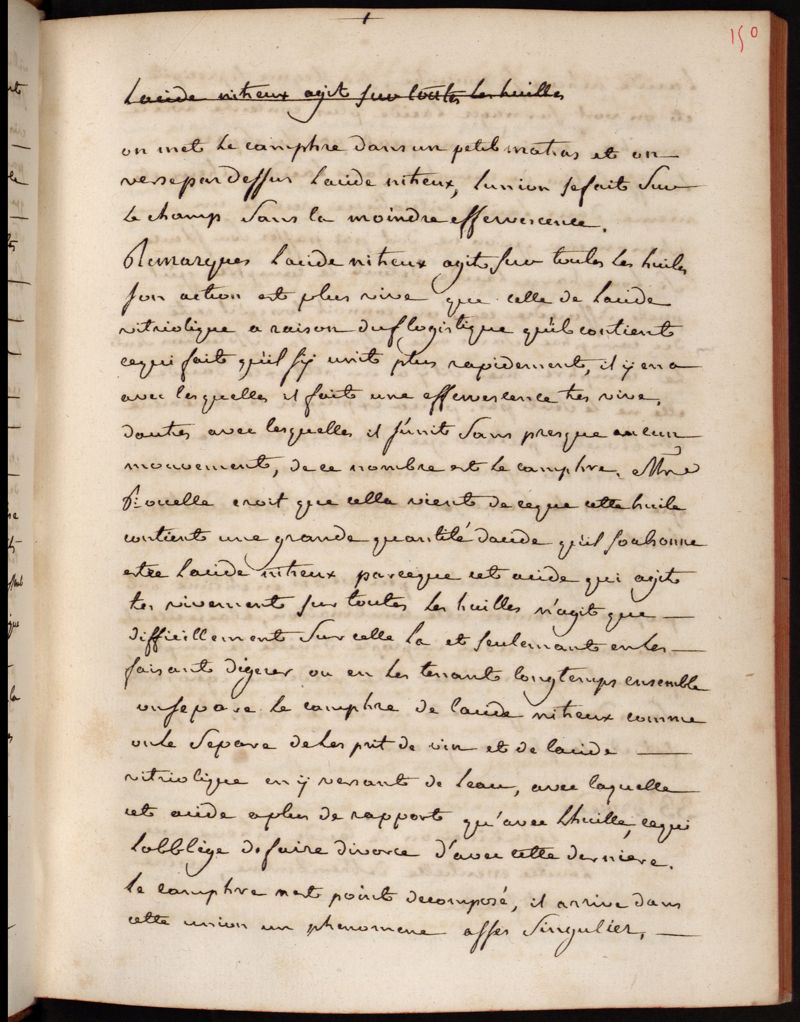 150
Lacide nitreux agit sur toutes les huilles
on met le camphre dans un petit matras et on
verse par dessus lacide nitreux, lunion se fait sur
le champ sans la moindre effervescence.
Remarques lacide nitreux agit sur toutes les huiles
son action est plus vive que celle de lacide
vitriolique a raison du flogistique qu'il contient
cequi fait qu'il s'y unit plus rapidement, il y en a
avec lesquelles il fait une effervescence tres vive,
dautres avec lesquelles il s'unit sans presque aucun
mouvement, de ce nombre est le camphre.
Rouelle croit que cella vient de ceque cette huile
contient une grande quantité dacide qu'il
entre lacide nitreux parceque cet acide qui agit
tes vivement sur toutes les huilles n'agit que —
difficillement sur celle la et seulemant en les —
faisant digerer ou en les tenant longtemps ensemble
on separe le camphre de lacide nitreux comme
on le separe de lesprit de vin et de lacide —
vitriolique en y versant de leau, avec laquelle
cet acide a plus de rapport qu'avec Lhuille, cequi
lobblige de faire divorce d'avec cette derniere.
le camphre nest point decomposé, il arrive dans
cette union un phenomene asses singulier, —